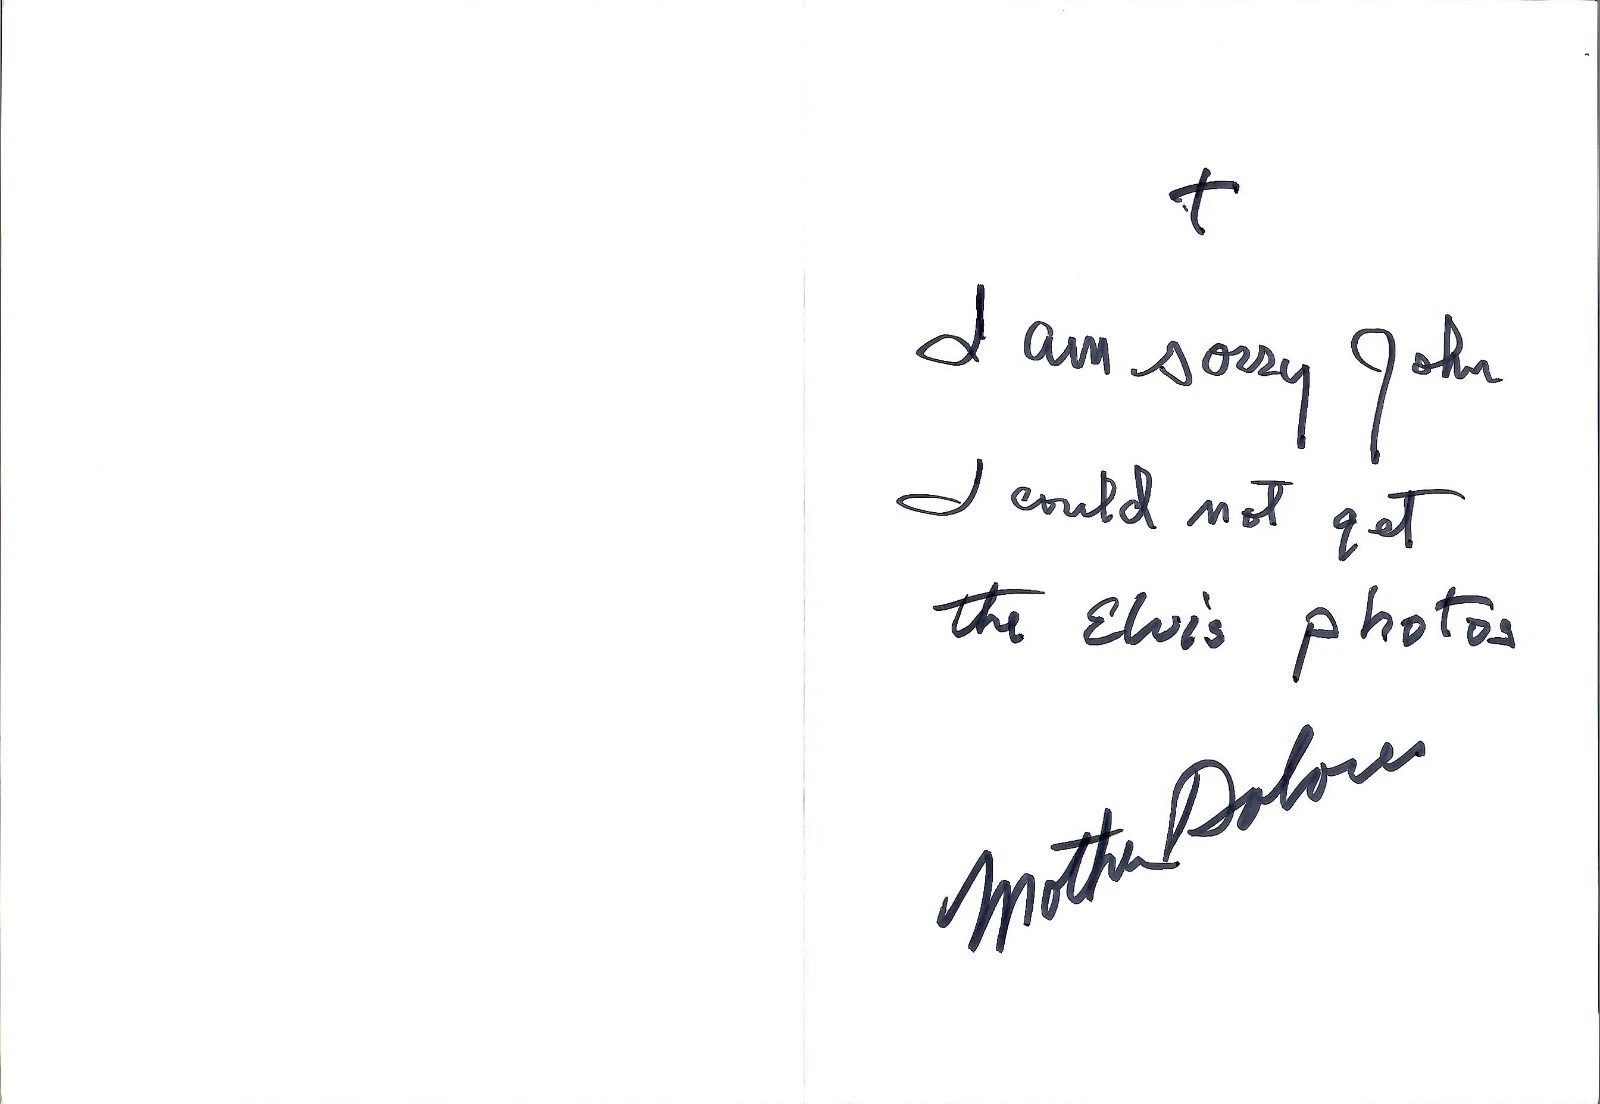 I am sorry John
I could not get
the Elvis photos
Mother Dolores